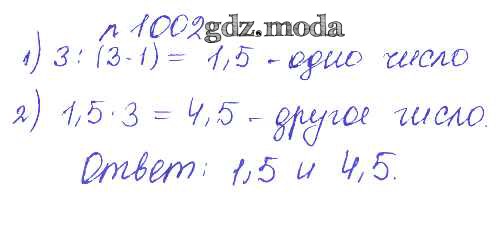 n 1002 gdz.moda
1) 3 : (3-1) = 1,5 - одно число
2) 1,5 · 3 = 4,5 - другое число.
Ответ: 1,5 и 4,5.